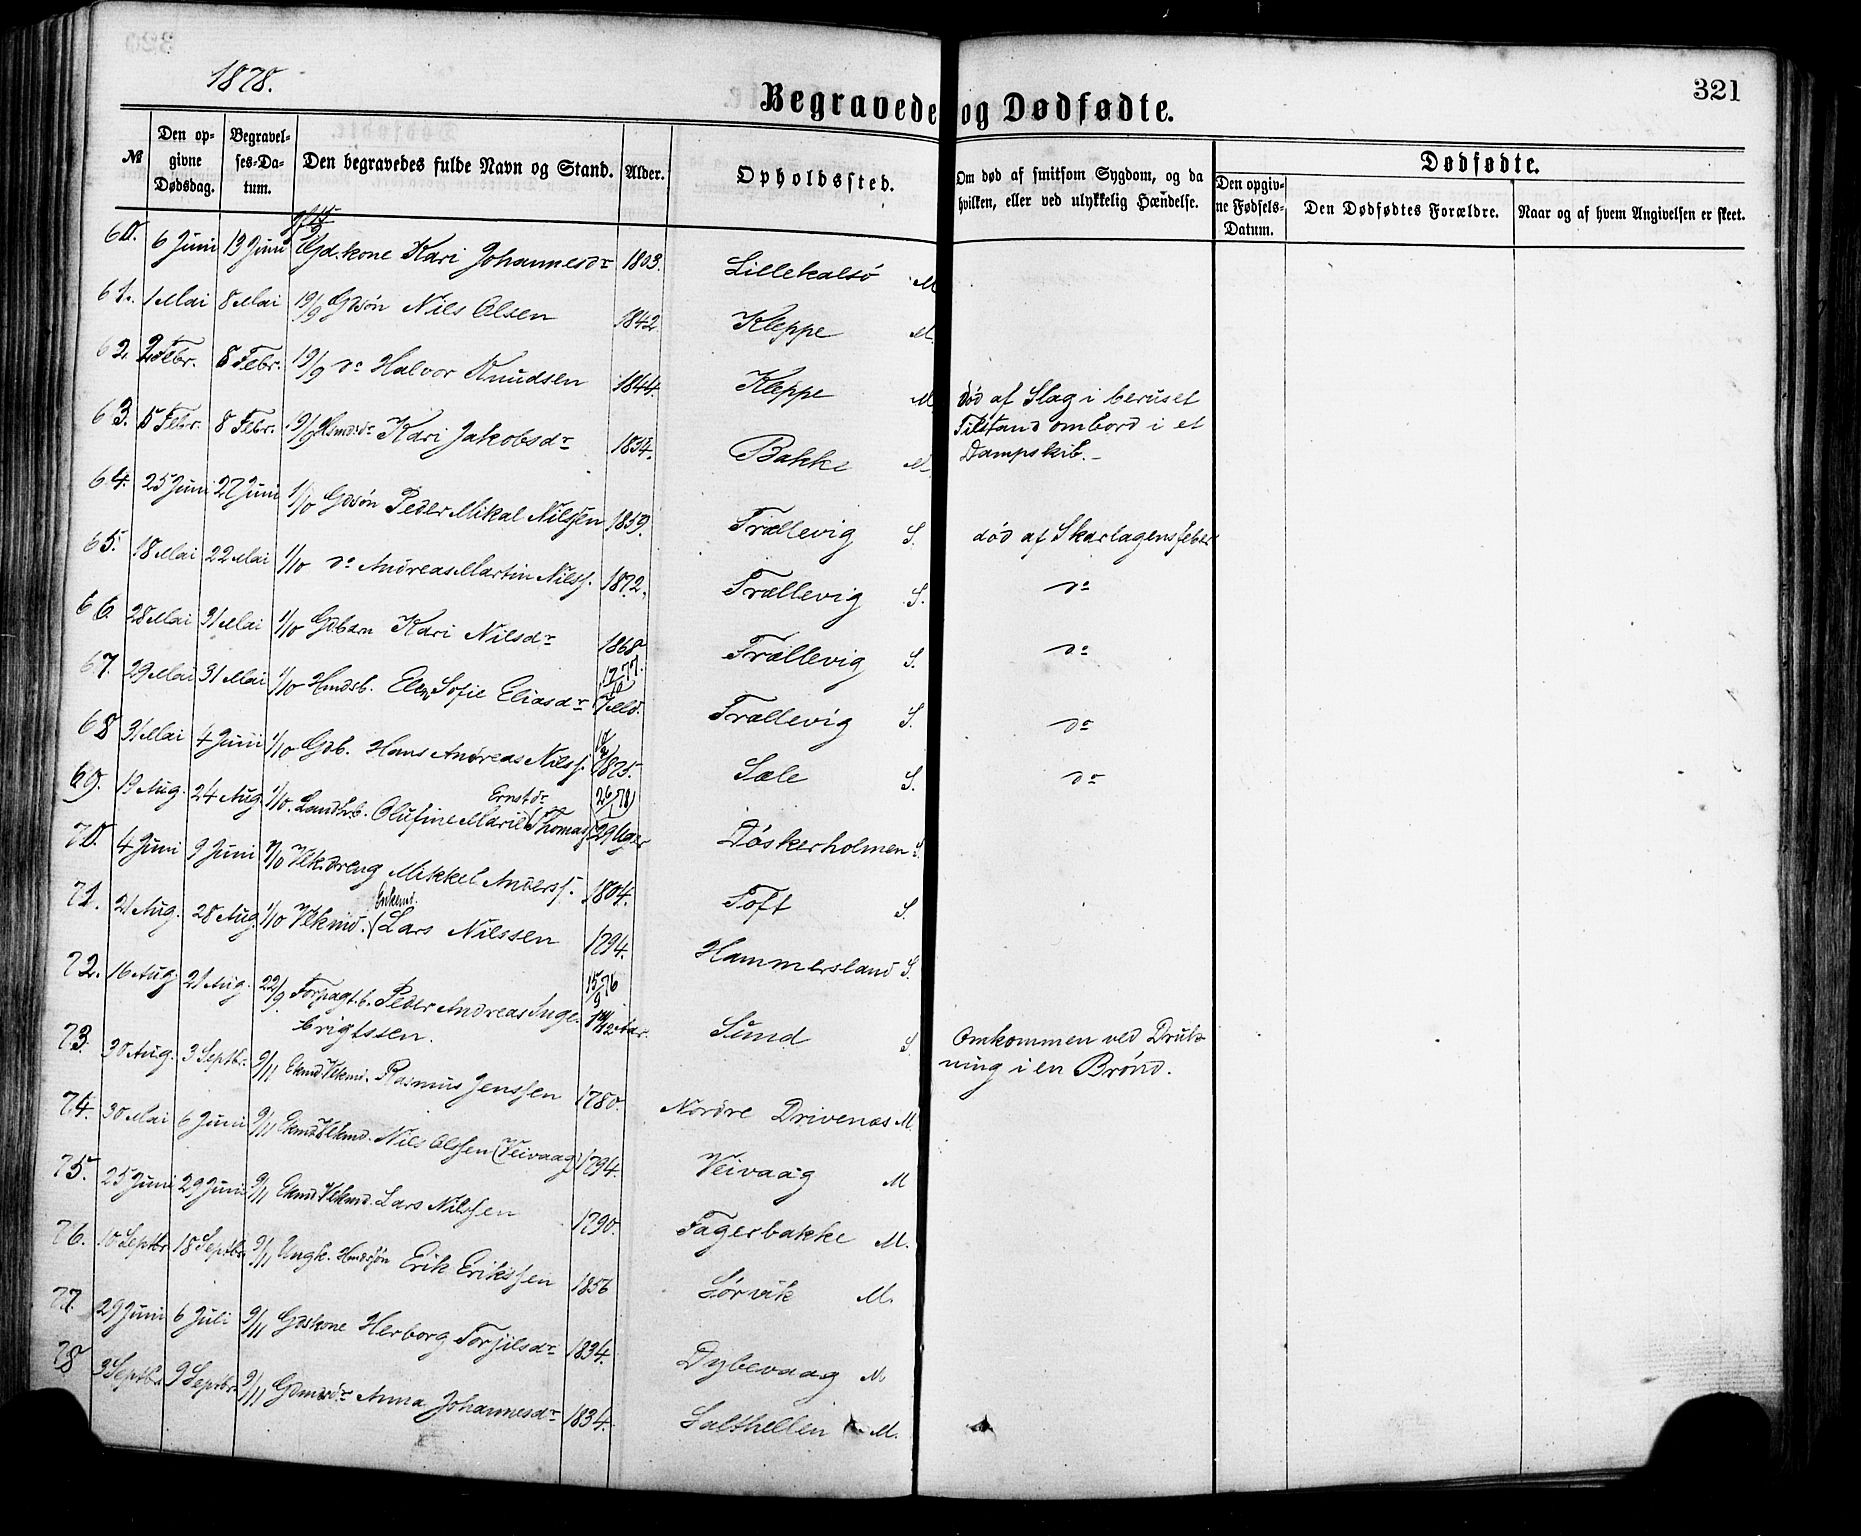 1878.
Begravede og Dødfødte.
321
№
Den opgivne Dødsdag.
Begravelses-Datum.
Den begravedes fulde Navn og Stand.
Alder.
Opholdssted.
Om død af smitsom Sygdom, og da hvilken, eller ved ulykkelig Hændelse.
Dødfødte.
Den opgivne Fødsels-Datum.
Den Dødfødtes Forældre.
Naar og af hvem Angivelsen er skeet.
60. 6 Juni 13 Juni Gd.kone Kari Johannesdr 1803. Lillekalsö M
61. 1 Mai 8 Mai 19/9 Gdsøn Nils Olsen 1842 Kleppe M.
62. 2 Febr. 8 Febr. 19/9 do Halvor Knudsen 1844. Kleppe M død af Slag i beruset
Tilstand ombord i et
Dampskib.
63. 5 Febr. 8 Febr. 19/9 Kari Jakobsdr 1834. Bakke M
64. 25 Juni 27 Juni 1/10 Gdsøn Peder Mikal Nilssen 1859. Trællevig S. død af Skarlagensfeber
65. 18 Mai 22 Mai 1/10 do Andreas Martin Nilss. 1872. Trællevig S. do
66. 28 Mai 31 Mai 1/10 Gdbarn Kari Nilsdr 1868 Trællevig S. do
67. 29 Mai 31 Mai 1/10 Hmdsb. Elen Sofie Eliasdr 12/10 77. 7 Md. Trællevig S. do
68 31 Mai 4 Juni 1/10 Gdb. Hans Andreas Nilss. 1875. Sæle S. do
69. 19 Aug. 24 Aug. 1/10. Landhb. Olufine Marie (Thomas Ernstdr 26/1 78) 29 Uger Døskerholmen S.
70. 4 Juni 9 Juni 1/10 Vlk.dreng Mikkel Anderss. 1804. Toft S.
71. 21 Aug. 28 Aug. 1/10 Vlkmd. (Enkemd. Lars Nilssen 1794. Hammersland S.
72. 16 Aug. 21 Aug. 22/9. Forpagt.b. Peder Andreas Inge-
brigtssen. 15/9 76 1 11/12 Aar. Sund S. Omkommen ved Druk-
ning i en Brønd.
73. 30 Aug. 3 Septbr. 9/11 Ekmd Vlkmd. Rasmus Jenssen 1780. Nordre Drivenæs M.
74. 30 Mai 6 Juni 9/11 Ekmd Vlkmd. Nils Olssen (Veivaag) 1794. Veivaag M
75. 25 Juni 29 Juni 9/11 Ekmd Vlkmd. Lars Nilssen 1790. Fagerbakke M.
76. 10 Septbr 18 Septbr. 9/11 Ungk. Hmdssøn Erik Erikssen 1856 Sørvik M.
77. 29 Juni 6 Juli 9/11 Gdskone Herborg Torjilsdr 1834. Dybevaag M
78 3 Septbr. 9 Septbr. 9/11 Gdmdsdr Anna Johannesdr 1834. Salthellen M.